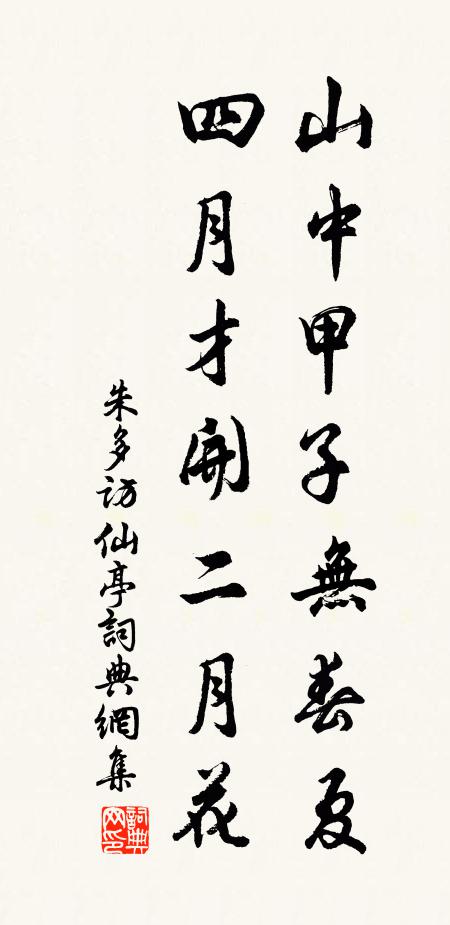 山中甲子無春夏
四月才開二月花
朱多访仙亭詞典網集
詞典网印